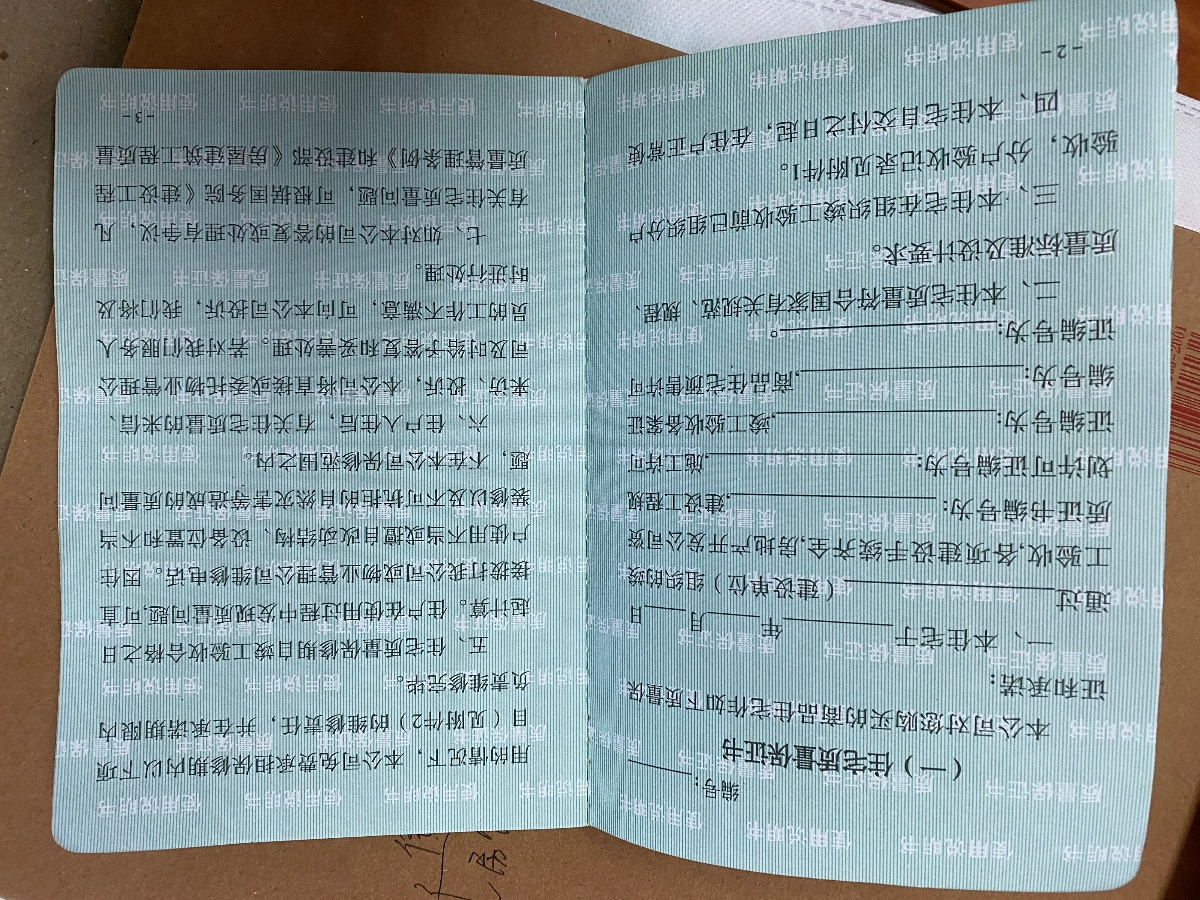 编号：
（一）住宅质量保证书
本公司对您购买的商品住宅作如下质量保
证和承诺：
一、本住宅于____年____月____日
通过____（建设单位）组织的竣
工验收,各项建设手续齐全,房地产开发公司资
质证书编号为:____,建设工程规
划许可证编号为:____,施工许可
证编号为:____,竣工验收备案证
编号为:____,商品住宅预售许可
证编号为:____。
二、本住宅质量符合国家有关规范、规程、
质量标准及设计要求。
三、本住宅在组织竣工验收前已组织分户
验收，分户验收记录见附件1。
四、本住宅自交付之日起，在住户正常使
-2-
用的情况下，本公司免费承担保修期内以下项
目（见附件2）的维修责任，并在承诺期限内
负责维修完毕。
五、住宅质量保修期自竣工验收合格之日
起计算。住户在使用过程中发现质量问题,可直
接拨打我公司或物业管理公司维修电话。因住
户使用不当或擅自改动结构、设备位置和不当
装修以及不可抗拒的自然灾害等造成的质量问
题，不在本公司保修范围之内。
六、住户入住后，有关住宅质量的来信、
来访、投诉，本公司将直接或委托物业管理公
司及时给予答复和妥善处理。若对我们服务人
员的工作不满意，可向本公司投诉，我们将及
时进行处理。
七、如对本公司的答复或处理有争议，凡
有关住宅质量问题，可根据国务院《建设工程
质量管理条例》和建设部《房屋建筑工程质量
-3-